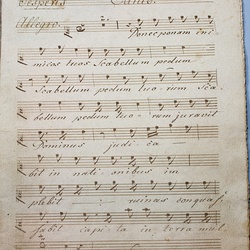 Vesperis Canto.
Allegro. Donec ponam ini
micos tuos Scabellum pedum
Scabellum pedum tuo- rum Sca
bellum pedum tuo- rum juravit
Dominus judi- ca-
bit in nati- onibus im
plebit ruinas conquas
sabit capi- ta in terra mul